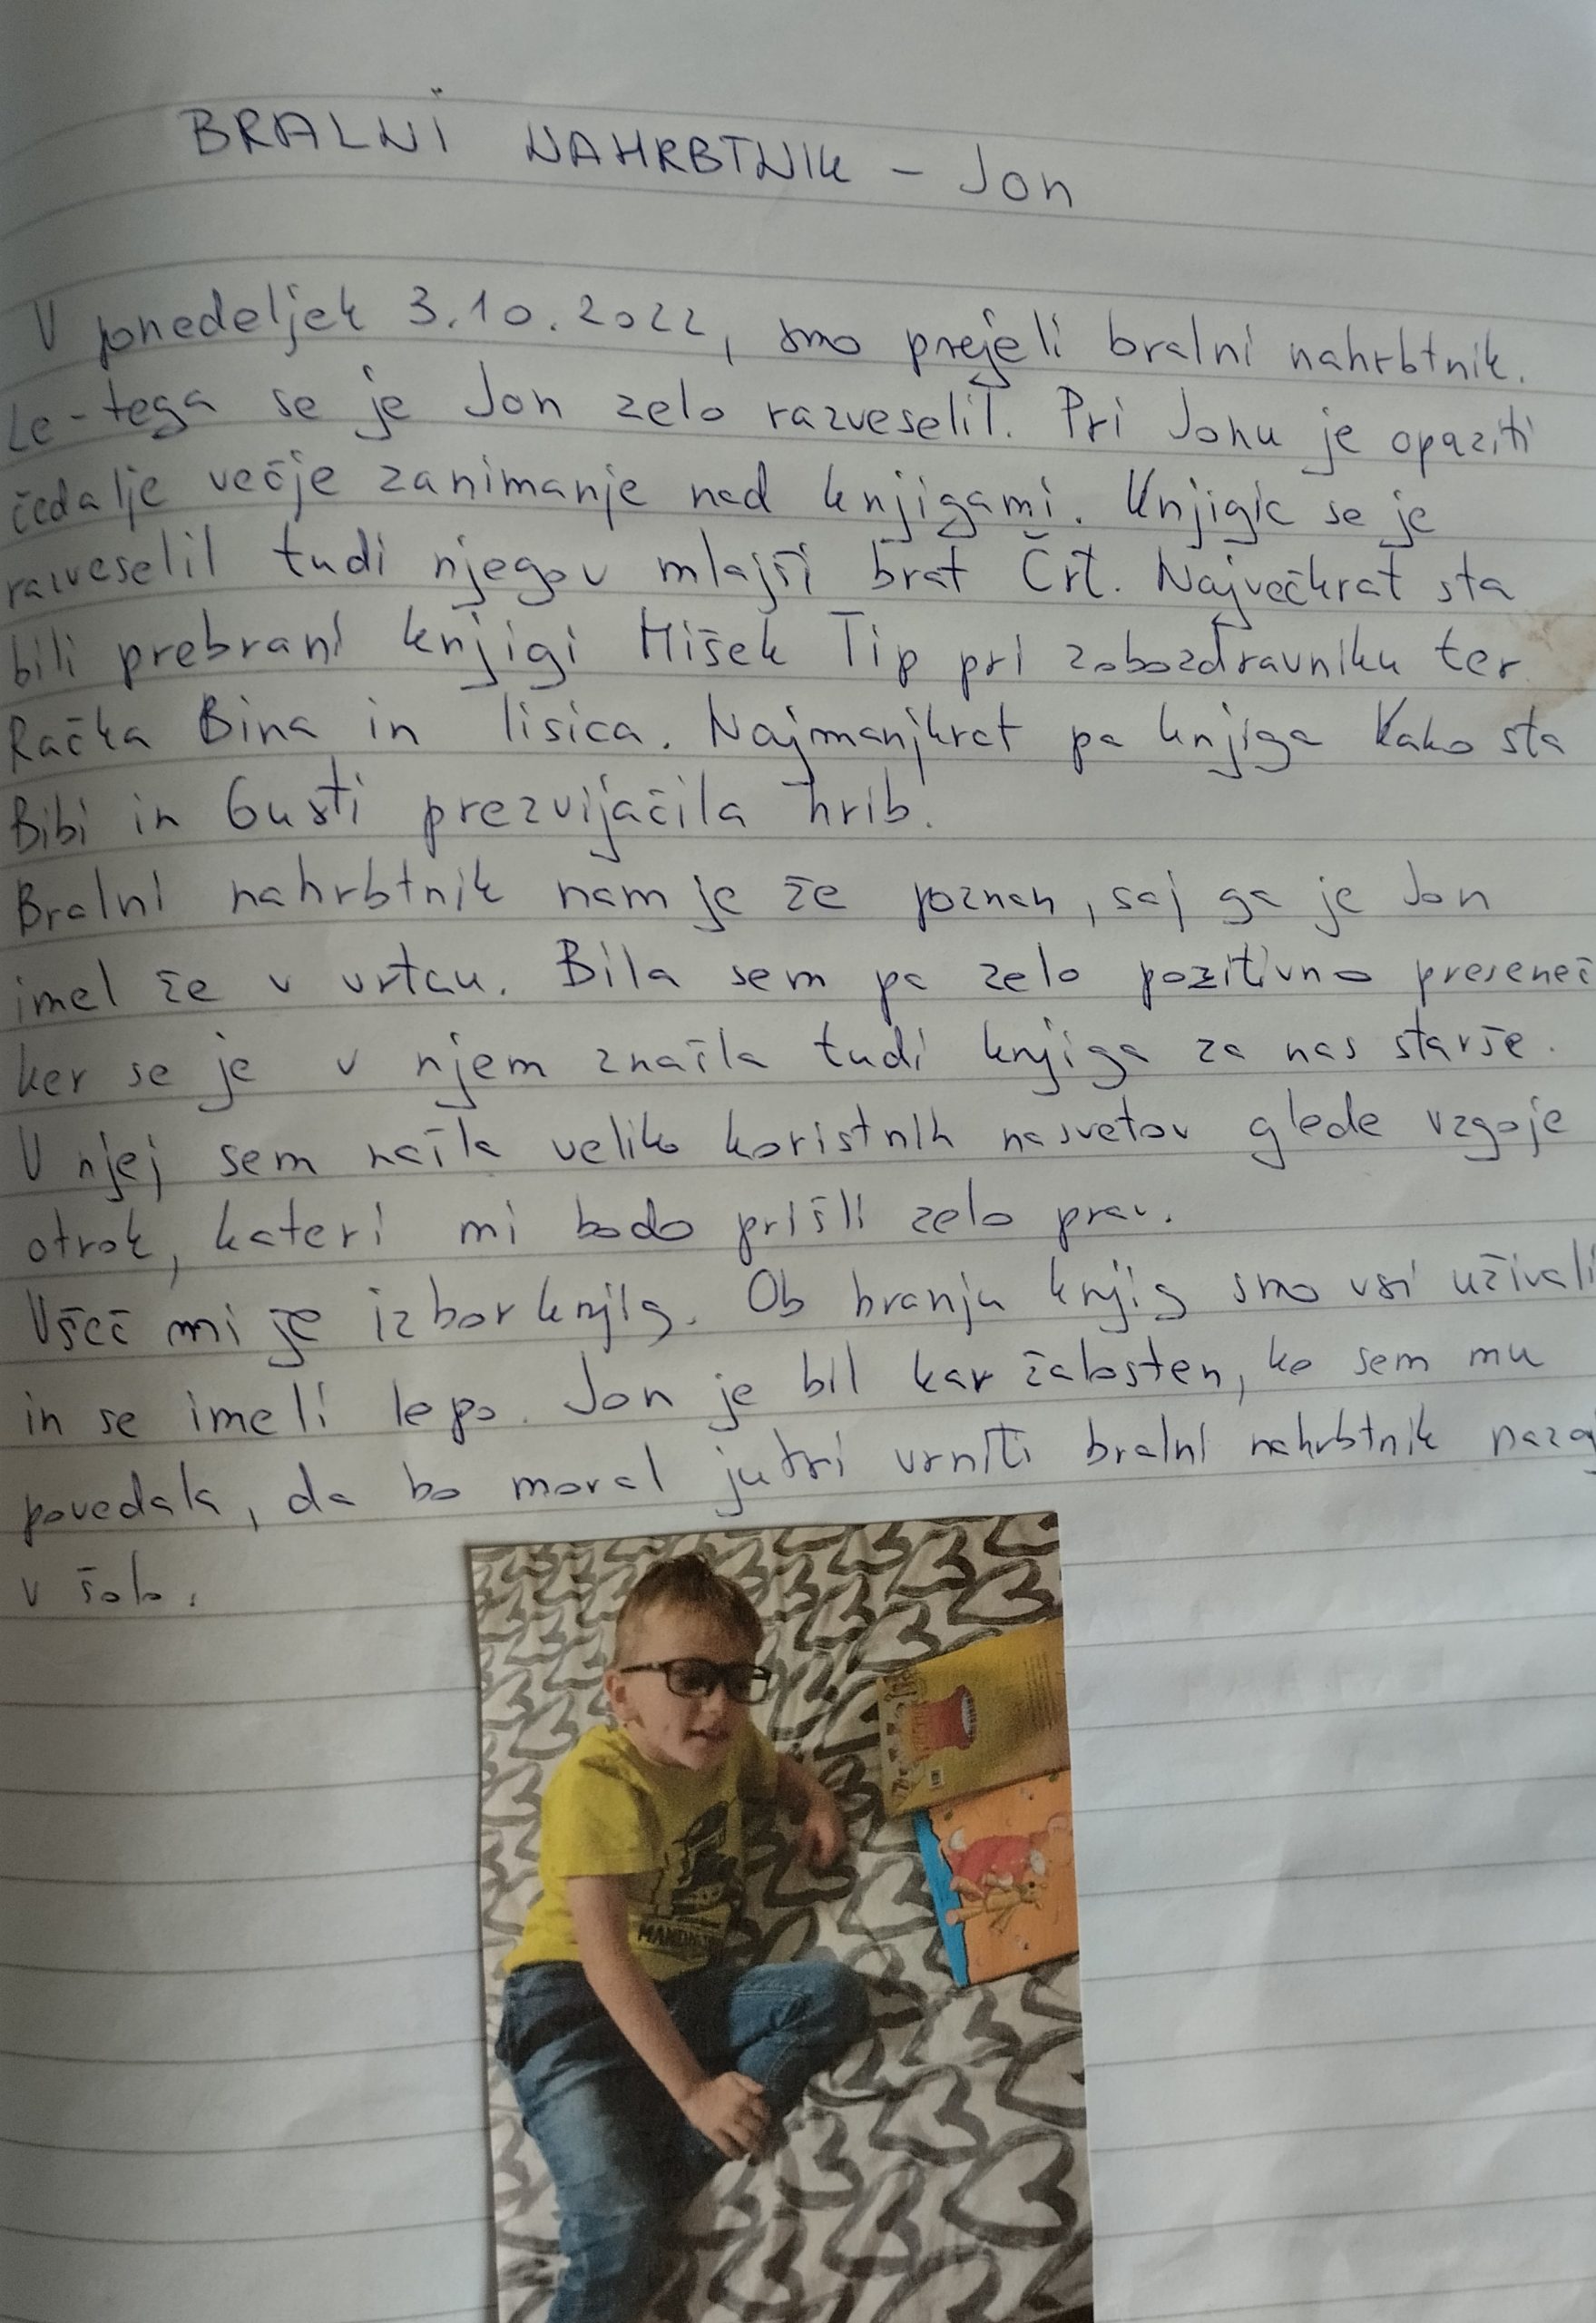 BRALNI NAHRBTNIK - Jon
V ponedeljek 3.10.2022, smo prejeli bralni nahrbtnik.
Le-tega se je Jon zelo razveselil. Pri Jonu je opaziti
čedalje večje zanimanje nad knjigami. Knjigic se je
razveselil tudi njegov mlajši brat Črt. Največkrat sta
bili prebrani knjigi Mišek Tip pri zobozdravniku ter
Račka Bina in lisica. Najmanjkrat pa knjiga Kako sta
Bibi in Gusti prezvijačila hrib.
Bralni nahrbtnik nam je že poznan, saj ga je Jon
imel že v vrtcu. Bila sem pa zelo pozitivno preseneč
ker se je v njem znašla tudi knjiga za nas starše.
V njej sem našla veliko koristnih nasvetov glede vzgoje
otrok, kateri mi bodo prišli zelo prav.
Všeč mi je izbor knjig. Ob branju knjig smo vsi uživali
in se imeli lepo. Jon je bil kar žalosten, ko sem mu
povedala, da bo moral jutri vrniti bralni nahrbtnik nazaj
v šolo.